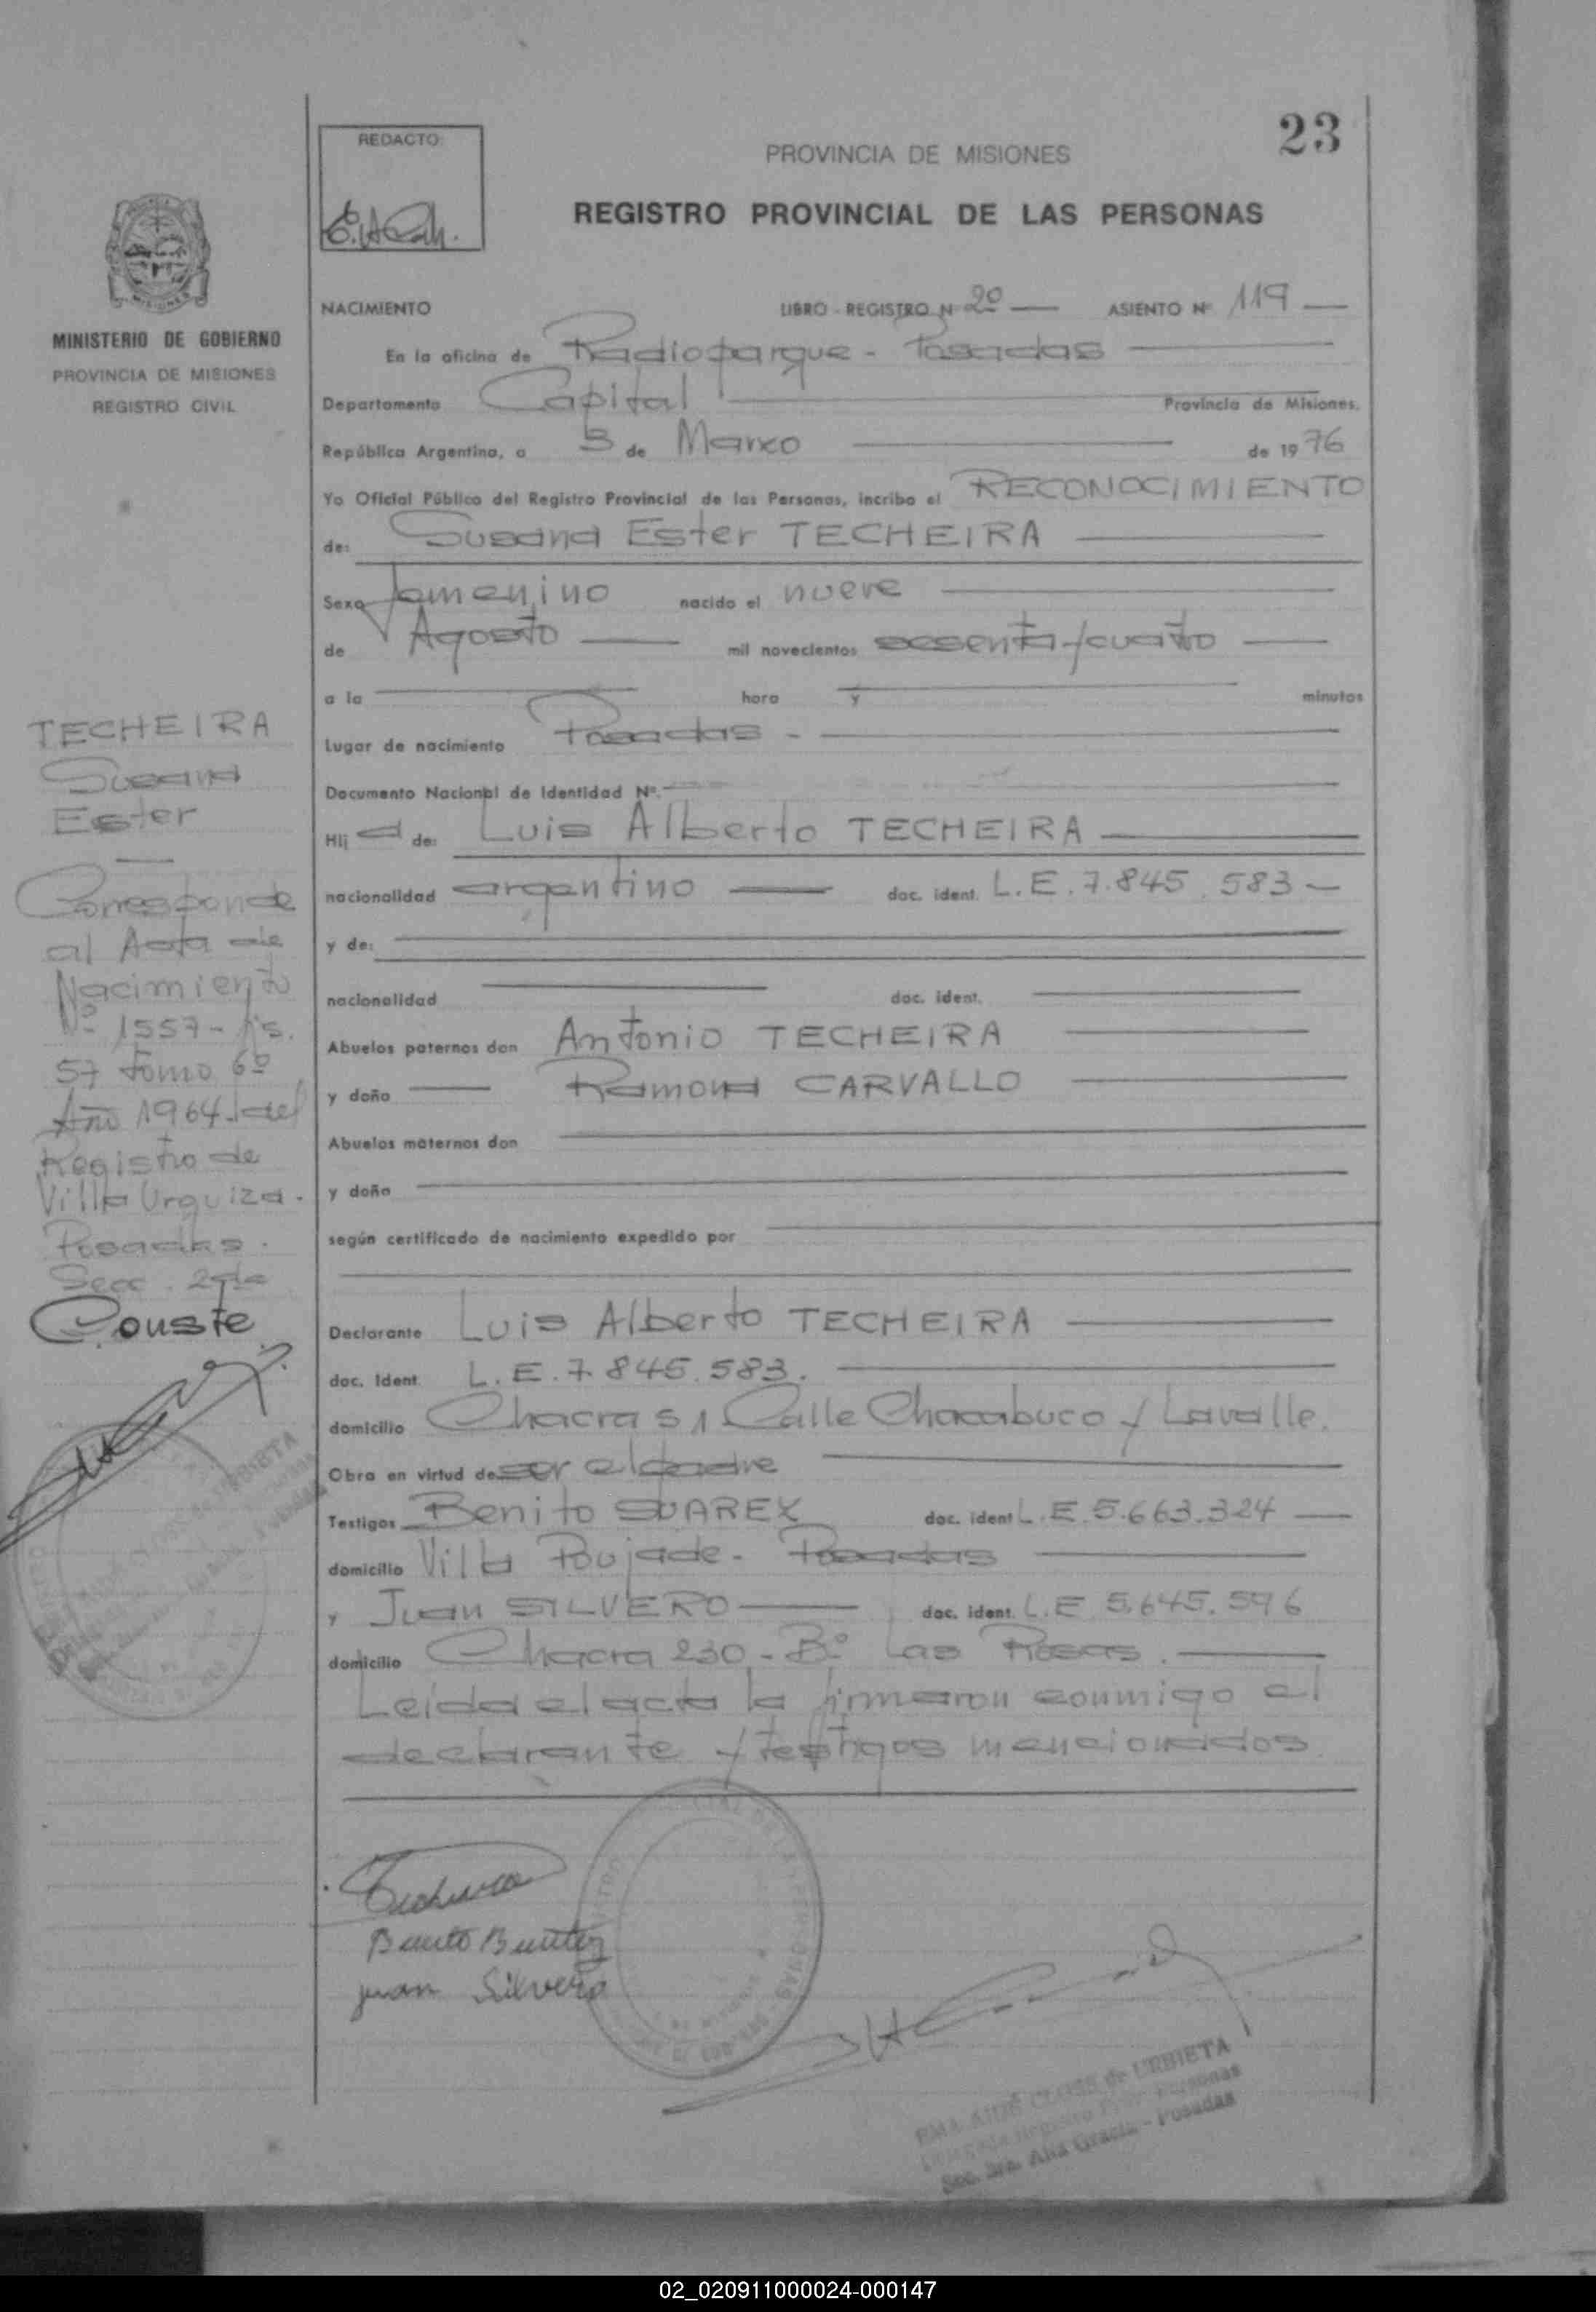 23
REDACTO
PROVINCIA DE MISIONES
REGISTRO PROVINCIAL DE LAS PERSONAS
MINISTERIO DE GOBIERNO
PROVINCIA DE MISIONES
REGISTRO CIVIL
NACIMIENTO LIBRO - REGISTRO Nº 2º ASIENTO Nº 119
En la oficina de Radioparque - Posadas
Departamento Capital Provincia de Misiones.
República Argentina, a 3 de Marzo de 1976
Yo Oficial Público del Registro Provincial de las Personas, incribo el RECONOCIMIENTO
de: Susana Ester TECHEIRA
Sexo femenino nacido el nueve
de Agosto mil novecientos sesenta y cuatro
a la hora y minutos
Lugar de nacimiento Posadas -
Documento Nacional de Identidad Nº.
Hij a de: Luis Alberto TECHEIRA
nacionalidad argentino doc. ident. L.E. 7.845.583
y de:
nacionalidad doc. ident.
Abuelos paternos don Antonio TECHEIRA
y doña Ramona CARVALLO
Abuelos maternos don
y doña
según certificado de nacimiento expedido por
Declarante Luis Alberto TECHEIRA
doc. Ident. L.E. 7.845.583.
domicilio Chacra 51 Calle Chacabuco y Lavalle.
Obra en virtud de ser el padre
Testigos Benito SUAREZ doc. ident L.E. 5.663.324
domicilio Villa Poujade - Posadas
y Juan SILVERO doc. ident. L.E 5.645.596
domicilio Chacra 230 - Bº Las Rosas.
Leída el acta la firmaron conmigo el
declarante y testigos mencionados
TECHEIRA
Susana
Ester
Corresponde
al Acta de
Nacimiento
Nº 1557 - fs.
57 tomo 6º
Año 1964 del
Registro de
Villa Urquiza.
Posadas.
Secc. 2da
Conste
Techeira
Benito
Juan Silvero
CLOSS de URBIETA
Alta Gracia - Posadas
02_020911000024-000147